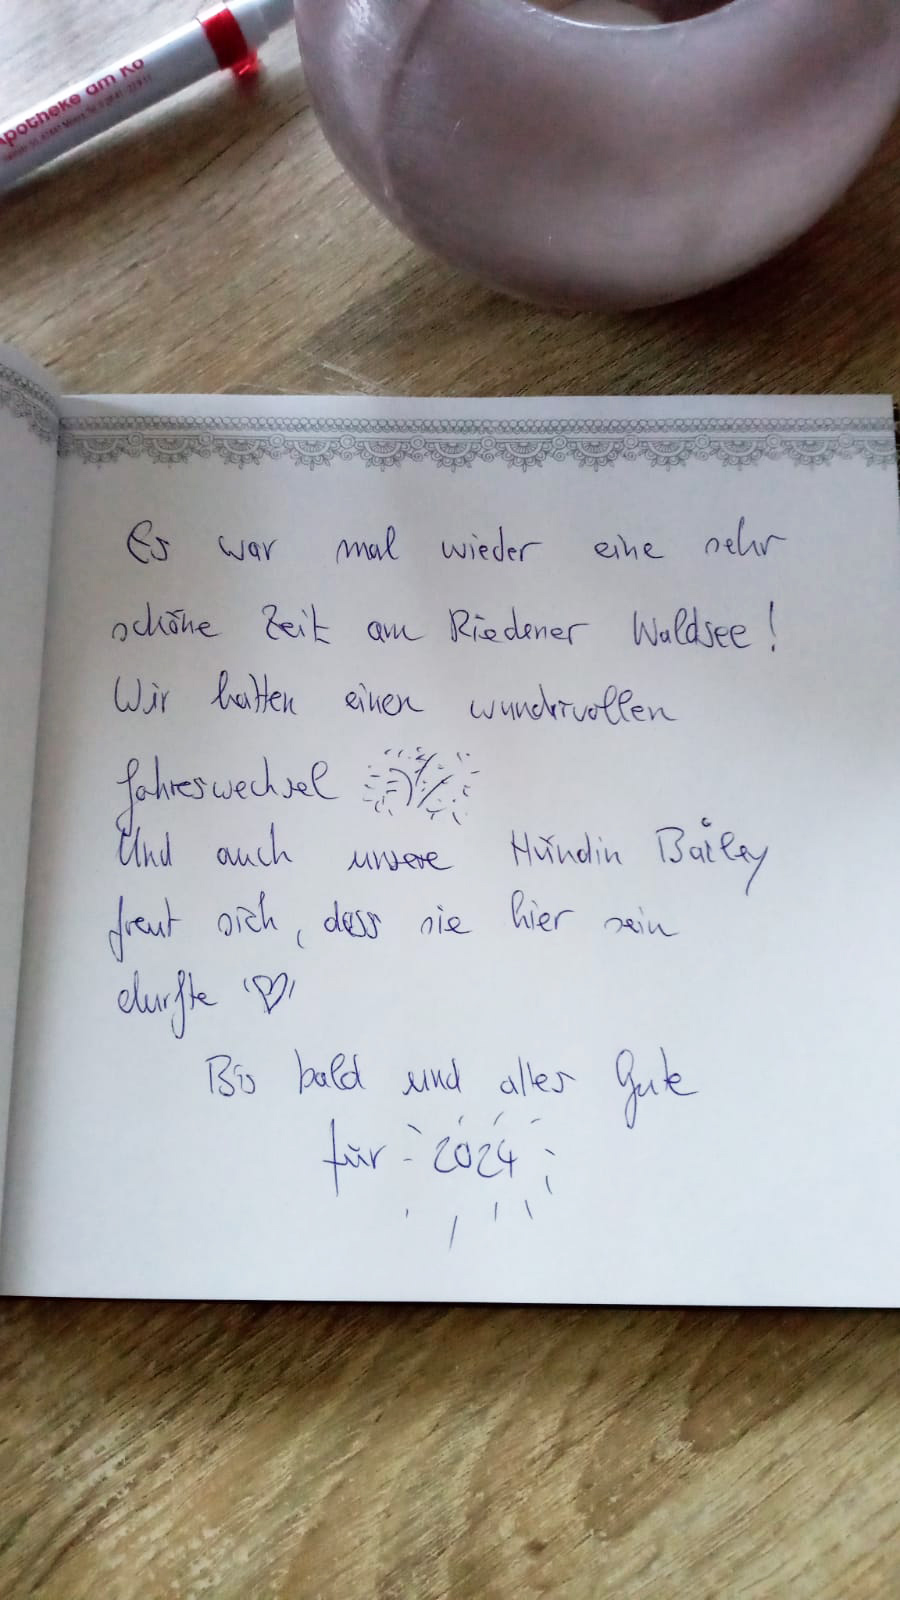 Apotheke am Ko
Es war mal wieder eine sehr
schöne Zeit am Riedener Waldsee!
Wir hatten einen wundervollen
Jahreswechsel
Und auch unsere Hündin Bailey
freut sich, dass sie hier sein
durfte ♡
Bis bald und alles Gute
für 2024